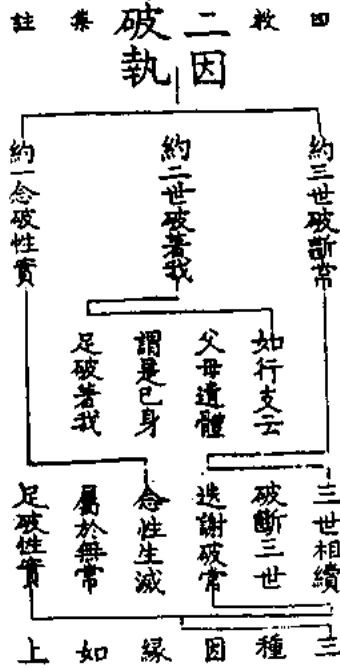 四教集註
二因
破執
約三世破斷常
約二世破著我
約一念破性實
如行支云
父母遺體
謂是已身
足破著我
三世相續
破斷三世
迭謝破常
念性生滅
屬於無常
足破性實
三種因緣如上